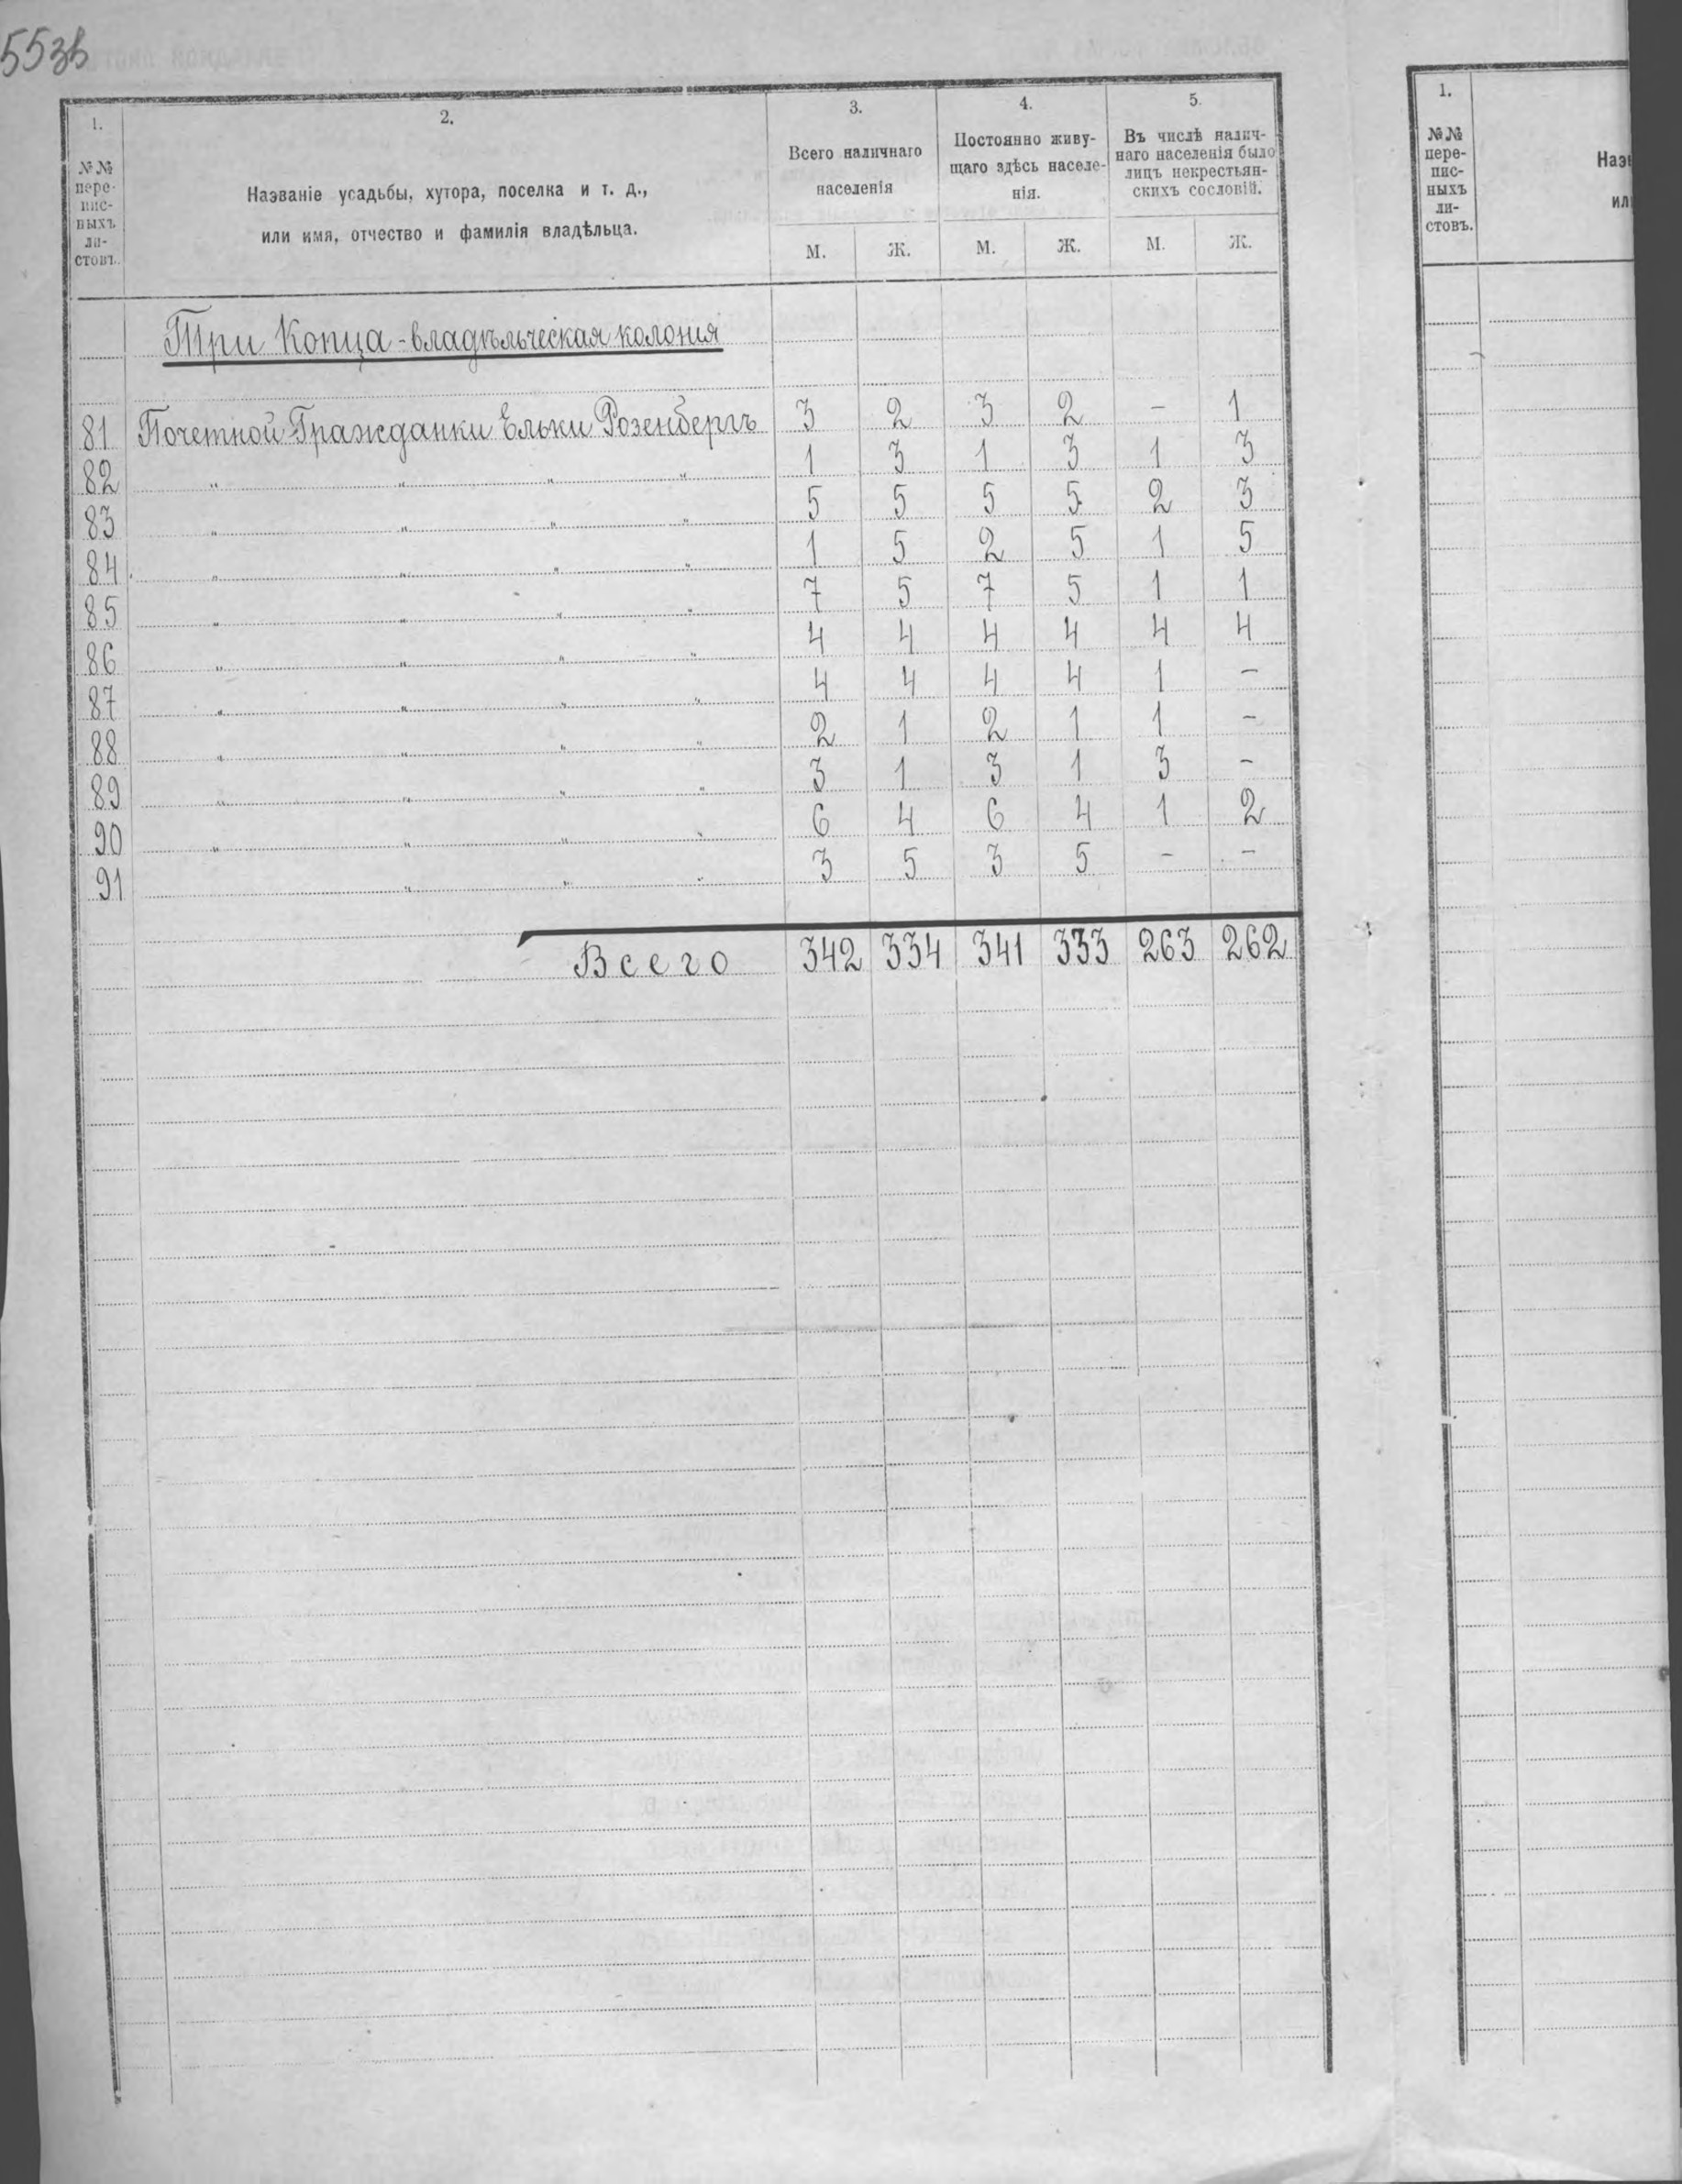 553в
1. 2. 3. 4. 5.
№№ пере-писныхъ ли-стовъ. Названіе усадьбы, хутора, поселка и т. д., или имя, отчество и фамилія владѣльца. Всего наличнаго населенія Постоянно живу-щаго здѣсь населе-нія. Въ числѣ налич-наго населенія было лицъ некрестьян-скихъ сословій.
М. Ж. М. Ж. М. Ж.
Три Копца - владѣльческая колонія
81 Почетной Гражданки Ельки Розенбергъ 3 2 3 2 - 1
82 " " " " 1 3 1 3 1 3
83 " " " " 5 5 5 5 2 3
84 " " " " 1 5 2 5 1 5
85 " " " " 7 5 7 5 1 1
86 " " " " 4 4 4 4 4 4
87 " " " " 4 4 4 4 1 -
88 " " " " 2 1 2 1 1 -
89 " " " " 3 1 3 1 3 -
90 " " " " 6 4 6 4 1 2
91 " " " 3 5 3 5 - -
Всего 342 334 341 333 263 262
1.
№№
пере-
пис-
ныхъ
ли-
стовъ.